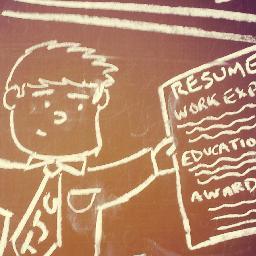 RESUME
WORK EXP
EDUCATIO
AWARD